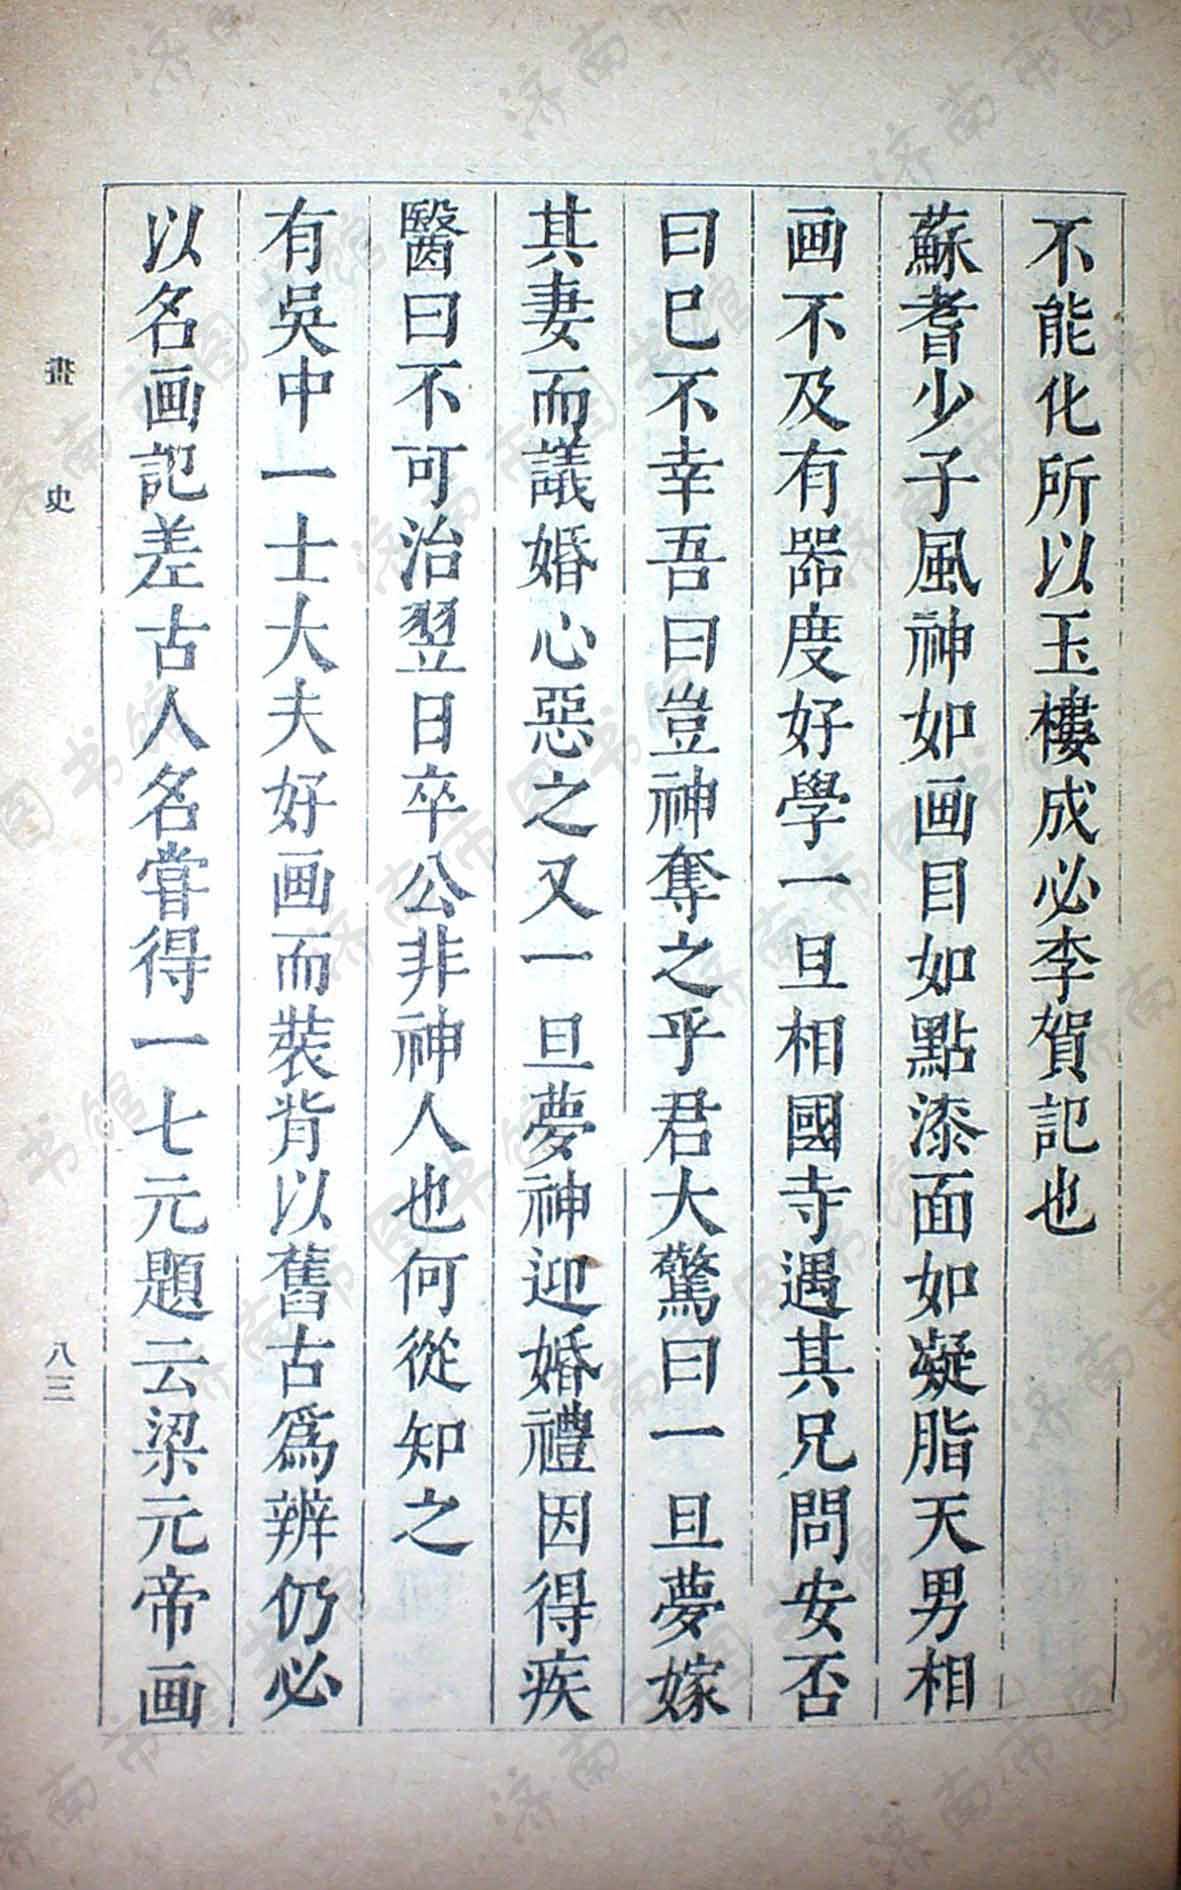 不能化所以玉樓成必李賀記也
蘇耆少子風神如画目如點漆面如凝脂天男相
画不及有器度好學一旦相國寺遇其兄問安否
曰巳不幸吾曰豈神奪之乎君大驚曰一旦夢嫁
其妻而議婚心惡之又一旦夢神迎婚禮因得疾
醫曰不可治翌日卒公非神人也何從知之
有吳中一士大夫好画而裝背以舊古爲辨仍必
以名画記差古人名嘗得一七元題云梁元帝画
畫史
八三
济南市图书馆